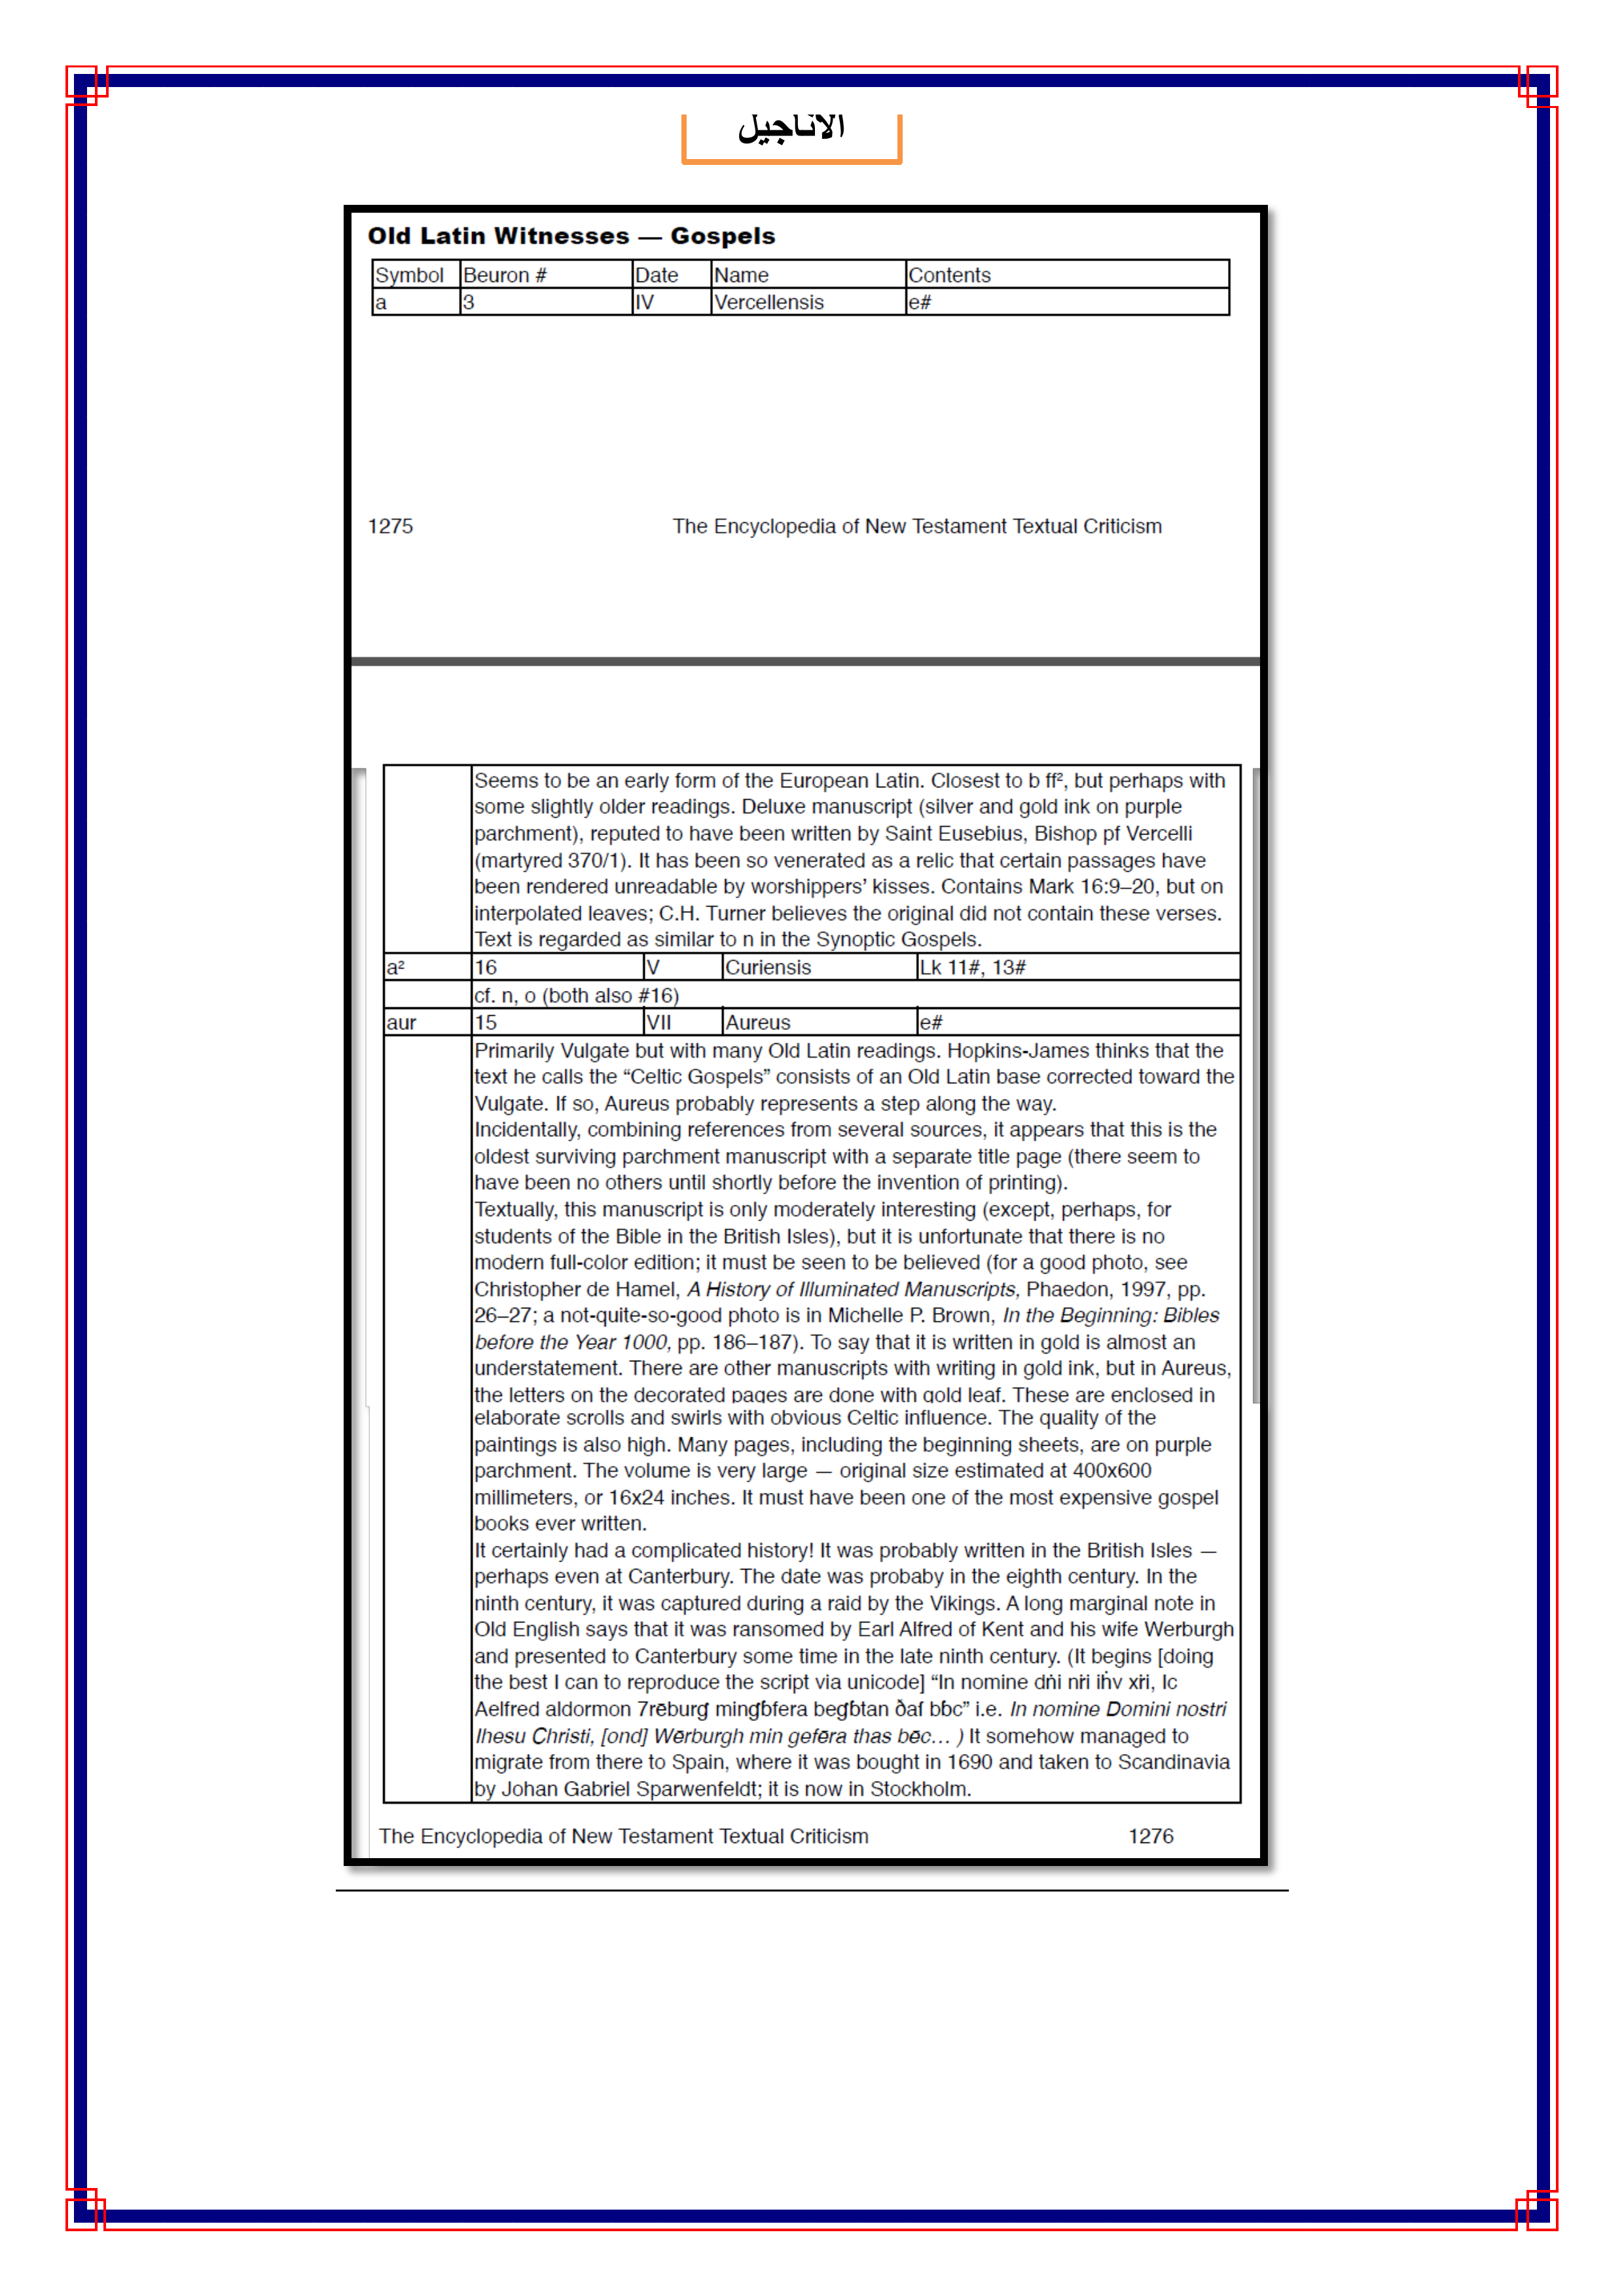 الاناجيل
Old Latin Witnesses — Gospels
Symbol Beuron # Date Name Contents
a 3 IV Vercellensis e#
1275 The Encyclopedia of New Testament Textual Criticism
Seems to be an early form of the European Latin. Closest to b ff², but perhaps with
some slightly older readings. Deluxe manuscript (silver and gold ink on purple
parchment), reputed to have been written by Saint Eusebius, Bishop pf Vercelli
(martyred 370/1). It has been so venerated as a relic that certain passages have
been rendered unreadable by worshippers’ kisses. Contains Mark 16:9–20, but on
interpolated leaves; C.H. Turner believes the original did not contain these verses.
Text is regarded as similar to n in the Synoptic Gospels.
a² 16 V Curiensis Lk 11#, 13#
cf. n, o (both also #16)
aur 15 VII Aureus e#
Primarily Vulgate but with many Old Latin readings. Hopkins-James thinks that the
text he calls the “Celtic Gospels” consists of an Old Latin base corrected toward the
Vulgate. If so, Aureus probably represents a step along the way.
Incidentally, combining references from several sources, it appears that this is the
oldest surviving parchment manuscript with a separate title page (there seem to
have been no others until shortly before the invention of printing).
Textually, this manuscript is only moderately interesting (except, perhaps, for
students of the Bible in the British Isles), but it is unfortunate that there is no
modern full-color edition; it must be seen to be believed (for a good photo, see
Christopher de Hamel, A History of Illuminated Manuscripts, Phaedon, 1997, pp.
26–27; a not-quite-so-good photo is in Michelle P. Brown, In the Beginning: Bibles
before the Year 1000, pp. 186–187). To say that it is written in gold is almost an
understatement. There are other manuscripts with writing in gold ink, but in Aureus,
the letters on the decorated pages are done with gold leaf. These are enclosed in
elaborate scrolls and swirls with obvious Celtic influence. The quality of the
paintings is also high. Many pages, including the beginning sheets, are on purple
parchment. The volume is very large — original size estimated at 400x600
millimeters, or 16x24 inches. It must have been one of the most expensive gospel
books ever written.
It certainly had a complicated history! It was probably written in the British Isles —
perhaps even at Canterbury. The date was probaby in the eighth century. In the
ninth century, it was captured during a raid by the Vikings. A long marginal note in
Old English says that it was ransomed by Earl Alfred of Kent and his wife Werburgh
and presented to Canterbury some time in the late ninth century. (It begins [doing
the best I can to reproduce the script via unicode] “In nomine Ic
Aelfred aldormon i.e. In nomine Domini nostri
Ihesu Christi, [ond] Wērburgh min gefēra thas bēc… ) It somehow managed to
migrate from there to Spain, where it was bought in 1690 and taken to Scandinavia
by Johan Gabriel Sparwenfeldt; it is now in Stockholm.
The Encyclopedia of New Testament Textual Criticism 1276